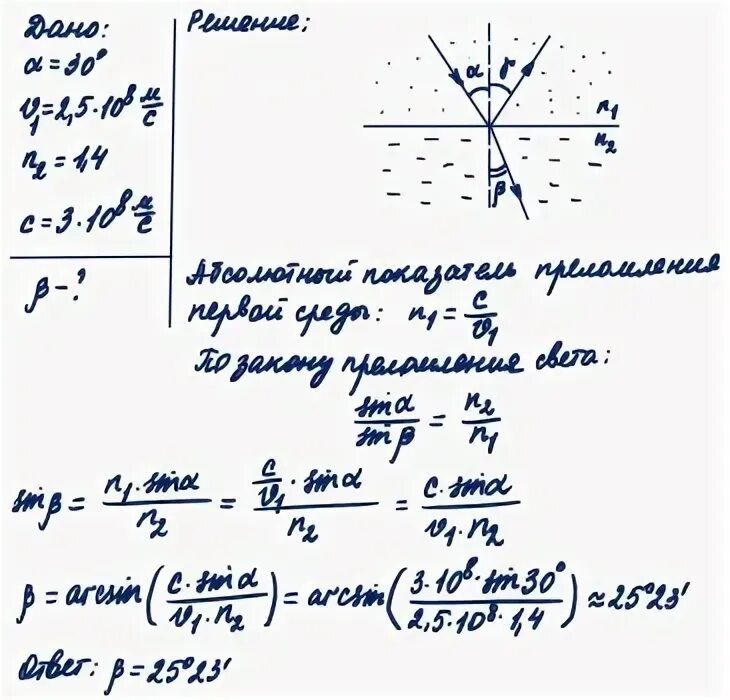 Дано:
α = 30°
v₁ = 2,5·10⁸ м/с
n₂ = 1,4
c = 3·10⁸ м/с
β - ?
Решение:
α γ
n₁
n₂
β
Абсолютный показатель преломления
первой среды: n₁ = c/v₁
По закону преломления света:
sinα/sinβ = n₂/n₁
sinβ = n₁·sinα/n₂ = (c/v₁·sinα)/n₂ = c·sinα/(v₁·n₂)
β = arcsin(c·sinα/(v₁·n₂)) = arcsin(3·10⁸·sin30°/(2,5·10⁸·1,4)) ≈ 25°23'
Ответ: β = 25°23'